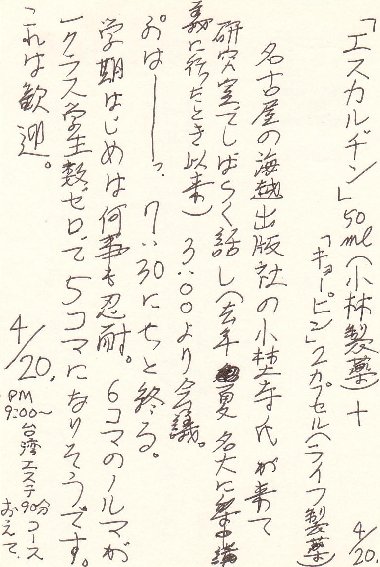 「エスカルヂン」50ml(小林製薬)+
「キョーピン」2カプセル(ライフ製薬)
4/20.
名古屋の海越出版社の小林寺氏が来て
研究室でしばらく話し(去年夏名大に集中講
義に行ったとき以来)3:00より会議。
ぷはーーっ、7:30にやっと終る。
学期はじめは何事も忍耐。6コマのノルマが
1クラス学生数ゼロで5コマになりそうです。
これは歓迎。
4/20.
PM
9:00~台湾エステ90分コース
おえて、